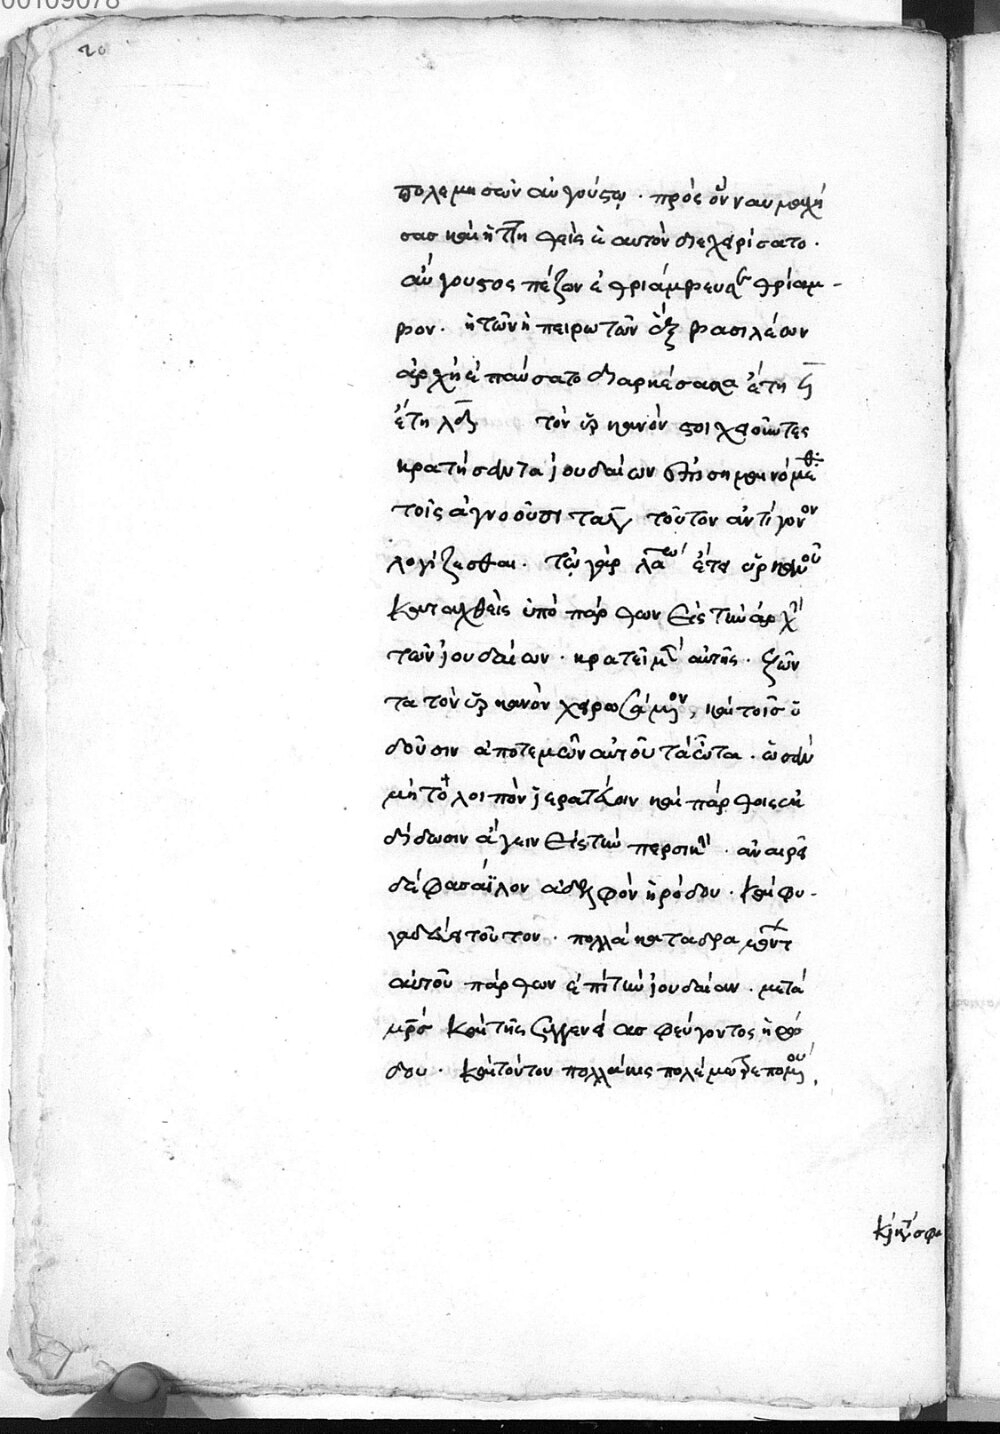 00109078
20
πολεμησων αὐγούστῳ · πρὸς ὃν ναυμαχή
σασ καὶ ἡττηθεὶς ἑαυτὸν διεχειρίσατο ·
αὔγουστος πέζον ἐθριάμβευσε θρίαμ-
βον · ἡ τῶν ἠπειρωτῶν ἀλεξ βασιλέων
ἀρχὴ ἐπαύσατο διαρκέσασα ἔτη
ἔτη λδ τὸν ὑρκανὸν στοιχειοῦντες
κρατήσαντα ἰουδαίων ἐπισημαινόμεθα
τοῖς ἀγνοοῦσι τοῦτον ἀντίγονον
λογίζεσθαι · τῷ γὰρ λδ ἔτει ὑρκανοῦ
καταχθεὶς ὑπὸ πάρθων εἰς τὴν ἀρχὴν
τῶν ἰουδαίων · κρατεῖ μὲν αὐτῆς · ζῶν
τα τὸν ὑρκανὸν χειρωσάμενον, καὶ τοῖς ὀ
δοῦσιν ἀποτεμὼν αὐτοῦ τὰ ὦτα · ὡς ἂν
μὴ τὸ λοιπὸν ἱερατεύειν καὶ πάρθοις ἐκ
δίδωσιν ἄγειν εἰς τὴν περσικὴν · ἀναιρεῖ
δὲ φασάϊλον ἀδελφὸν ἡρώδου · καὶ φυ-
γαδεύει τοῦτον · πολλὰ καταδραμόντων
αὐτοῦ πάρθων ἐπὶ τὴν ἰουδαίαν · μετὰ
μητρὸς καὶ τῆς συγγενείασ φεύγοντος ἡρώ
δου · καὶ τούτου πολλάκις πολέμῳ ἑπομένου,